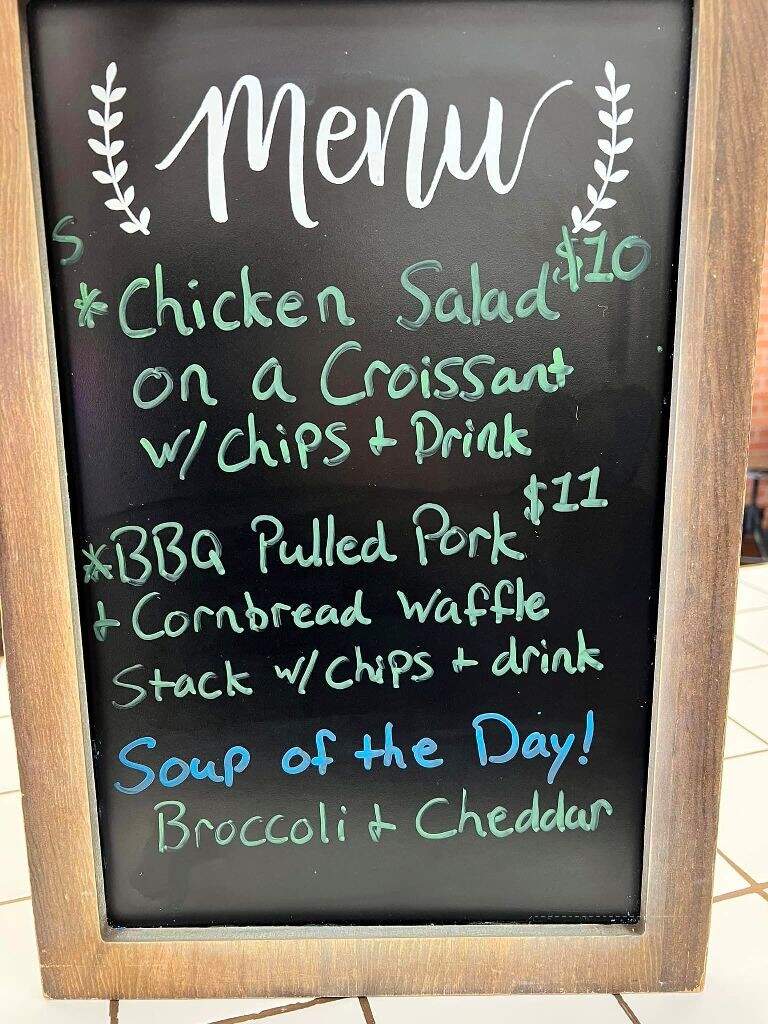 Menu
S
$10
*Chicken Salad
on a Croissant
w/ chips + Drink
$11
*BBQ Pulled Pork
+ Cornbread waffle
Stack w/ chips + drink
Soup of the Day!
Broccoli + Cheddar